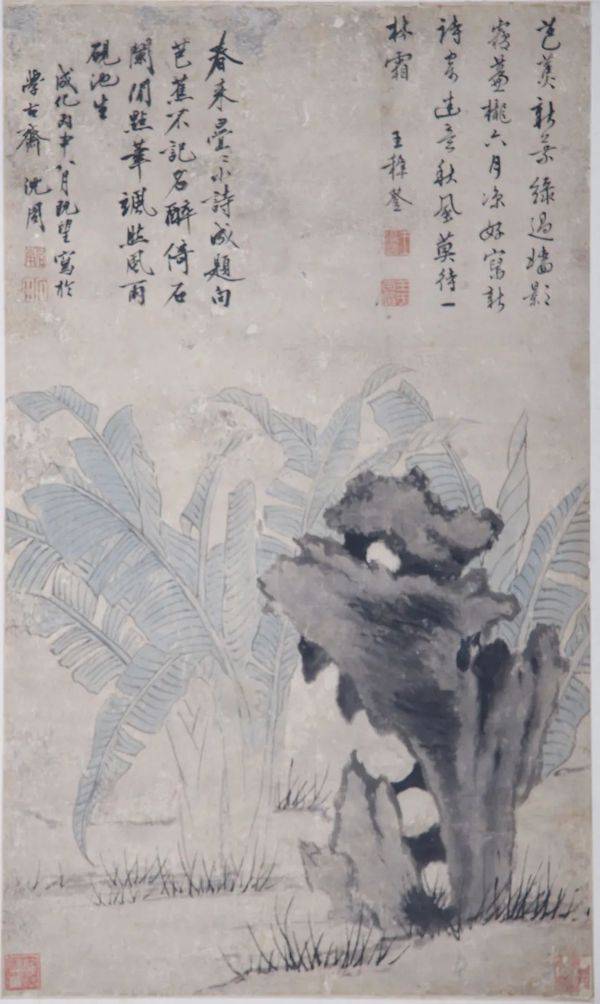 芭蕉新葉綠過墻影
落簾櫳六月涼好寫新
詩寄遠意秋風莫待一
林霜 王穉登
春來疊〻小詩成題向
芭蕉不記名醉倚石
闌閒點筆颯然風雨
硯池生
成化丙申八月既望寫於
學古齋 沈周